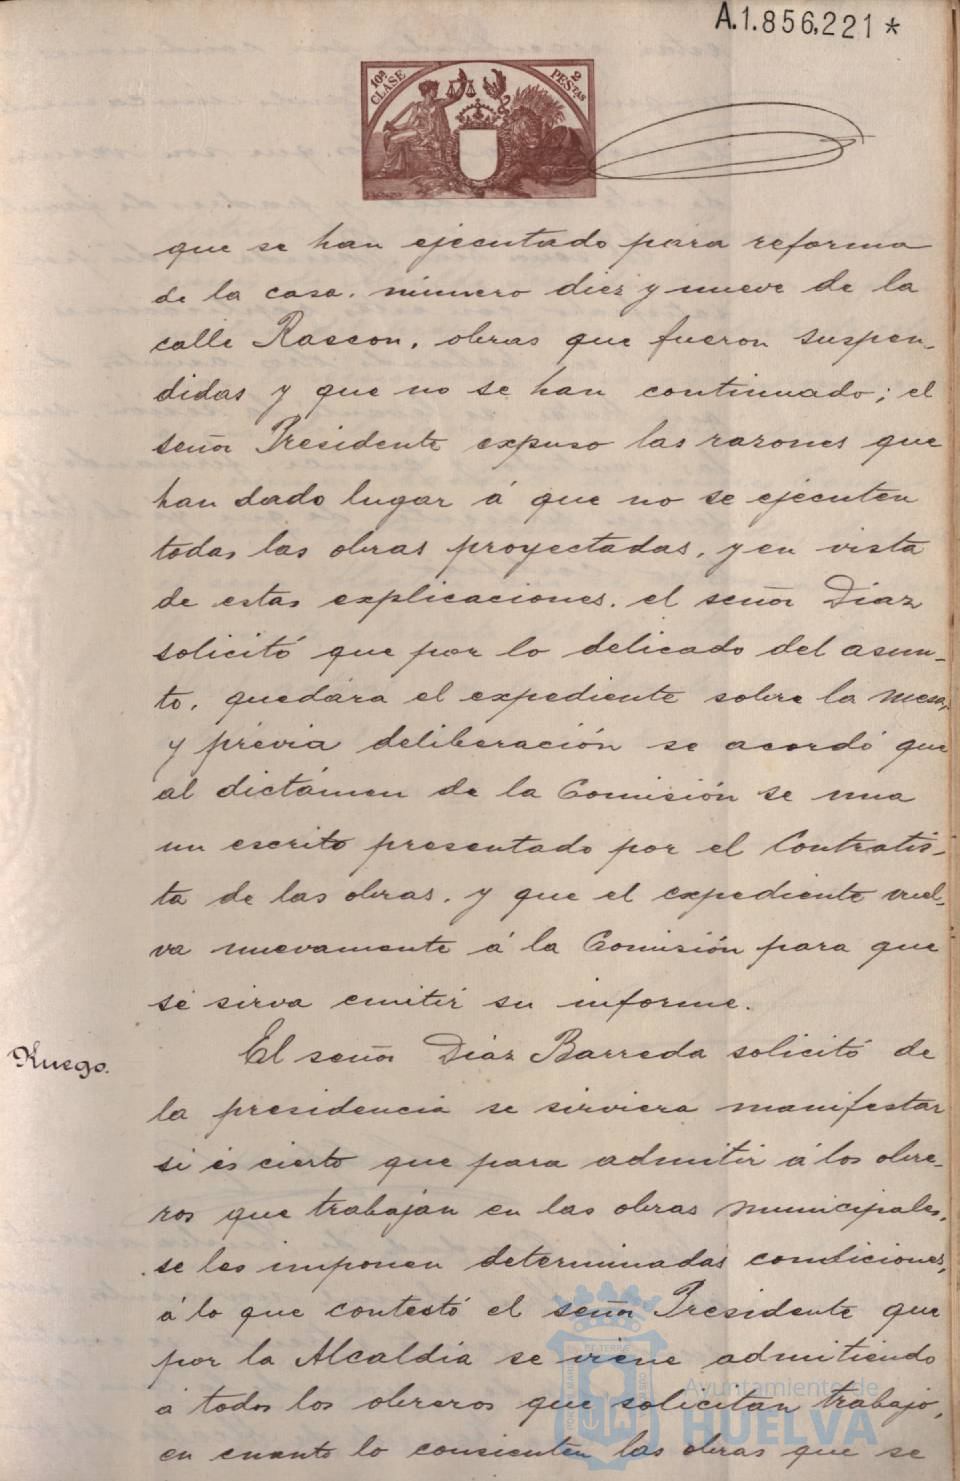 A.1.856,221 *
10ª CLASE
2 PESTAS
que se han ejecutado para reforma
de la casa. número diez y nueve de la
calle Rascon, obras que fueron suspen-
didas y que no se han continuado; el
señor Presidente expuso las razones que
han dado lugar á que no se ejecuten
todas las obras proyectadas, y en vista
de estas explicaciones. el señor Diaz
solicitó que por lo delicado del asun-
to, quedára el expediente sobre la mesa,
y prévia deliberación se acordó que
al dictámen de la Comisión se una
un escrito presentado por el Contratis-
ta de las obras, y que el expediente vuel-
va nuevamente á la Comisión para que
se sirva emitir su informe.
Ruego.
El señor Diaz Barreda solicitó de
la presidencia se sirviera manifestar
si es cierto que para admitir á los obre-
ros que trabajan en las obras municipales,
se les imponen determinadas condiciones,
á lo que contestó el señor Presidente que
por la Alcaldía se viene admitiendo
a todos los obreros que solicitan trabajo,
en cuanto lo consienten las obras que se
Ayuntamiento de
HUELVA